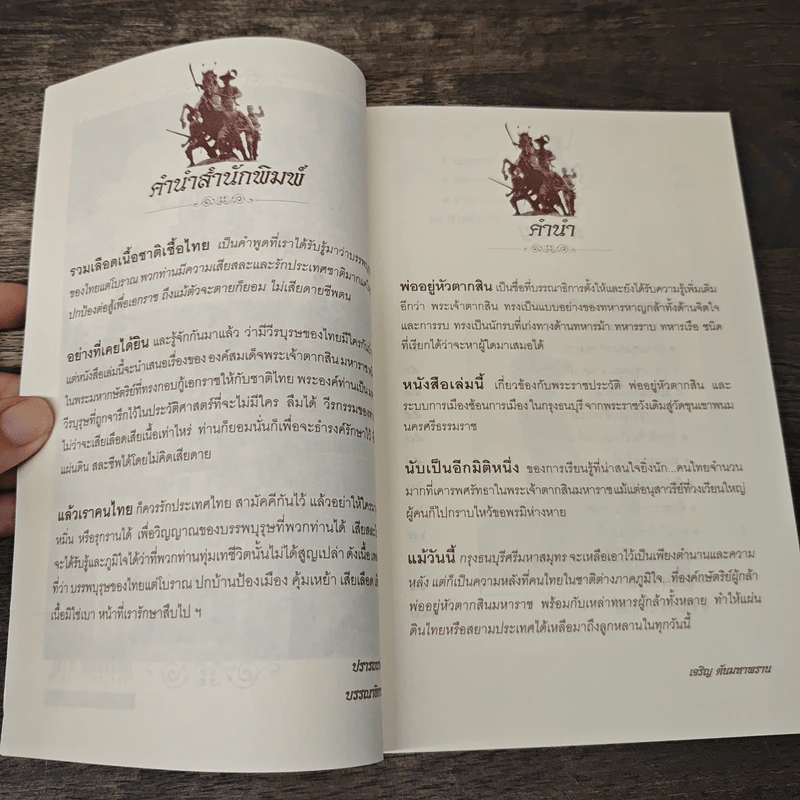 คำนำสำนักพิมพ์
รวมเลือดเนื้อชาติเชื้อไทย เป็นคำพูดที่เราได้รับรู้มาว่าบรรพบุรุษ
ของไทยแต่โบราณ พวกท่านมีความเสียสละและรักประเทศชาติมาก
ปกป้องต่อสู้เพื่อเอกราช ถึงแม้ตัวจะตายก็ยอม ไม่เสียดายชีพตน
อย่างที่เคยได้ยิน และรู้จักกันมาแล้ว ว่ามีวีรบุรุษของไทยมีใคร
แต่หนังสือเล่มนี้จะนำเสนอเรื่องของ องค์สมเด็จพระเจ้าตากสิน มหาราช
ในพระมหากษัตริย์ที่ทรงกอบกู้เอกราชให้กับชาติไทย พระองค์ท่านเป็น
วีรบุรุษที่ถูกจารึกไว้ในประวัติศาสตร์ที่จะไม่มีใคร ลืมได้ วีรกรรมของ
ไม่ว่าจะเสียเลือดเสียเนื้อเท่าไหร่ ท่านก็ยอมนั่นก็เพื่อจะธำรงค์รักษาไว้
แผ่นดิน สละชีพได้โดยไม่คิดเสียดาย
แล้วเราคนไทย ก็ควรรักประเทศไทย สามัคคีกันไว้ แล้วอย่าให้ใคร
หมิ่น หรือรุกรานได้ เพื่อวิญญาณของบรรพบุรุษที่พวกท่านได้ เสียสละ
จะได้รับรู้และภูมิใจได้ว่าที่พวกท่านทุ่มเทชีวิตนั้นไม่ได้สูญเปล่า ดังเนื้อ
ที่ว่า บรรพบุรุษของไทยแต่โบราณ ปกบ้านป้องเมือง คุ้มเหย้า เสียเลือด
เนื้อมิใช่เบา หน้าที่เรารักษาสืบไป ฯ
บรรณาธิ
คำนำ
พ่ออยู่หัวตากสิน เป็นชื่อที่บรรณาธิการตั้งให้และยังได้รับความรู้เพิ่มเติม
อีกว่า พระเจ้าตากสิน ทรงเป็นแบบอย่างของทหารหาญกล้าทั้งด้านจิตใจ
และการรบ ทรงเป็นนักรบที่เก่งทางด้านทหารม้า ทหารราบ ทหารเรือ ชนิด
ที่เรียกได้ว่าจะหาผู้ใดมาเสมอได้
หนังสือเล่มนี้ เกี่ยวข้องกับพระราชประวัติ พ่ออยู่หัวตากสิน และ
ระบบการเมืองซ้อนการเมืองในกรุงธนบุรี จากพระราชวังเดิมสู่วัดขุนเขาพนม
นครศรีธรรมราช
นับเป็นอีกมิติหนึ่ง ของการเรียนรู้ที่น่าสนใจยิ่งนัก...คนไทยจำนวน
มากที่เคารพศรัทธาในพระเจ้าตากสินมหาราชแม้แต่อนุสาวรีย์ที่วงเวียนใหญ่
ผู้คนก็ไปกราบไหว้ขอพรมิห่างหาย
แม้วันนี้ กรุงธนบุรีศรีมหาสมุทร จะเหลือเอาไว้เป็นเพียงตำนานและความ
หลัง แต่ก็เป็นความหลังที่คนไทยในชาติต่างภาคภูมิใจ...ที่องค์กษัตริย์ผู้กล้า
พ่ออยู่หัวตากสินมหาราช พร้อมกับเหล่าทหารผู้กล้าทั้งหลาย ทำให้แผ่น
ดินไทยหรือสยามประเทศได้เหลือมาถึงลูกหลานในทุกวันนี้
เจริญ ตันมหาพราน